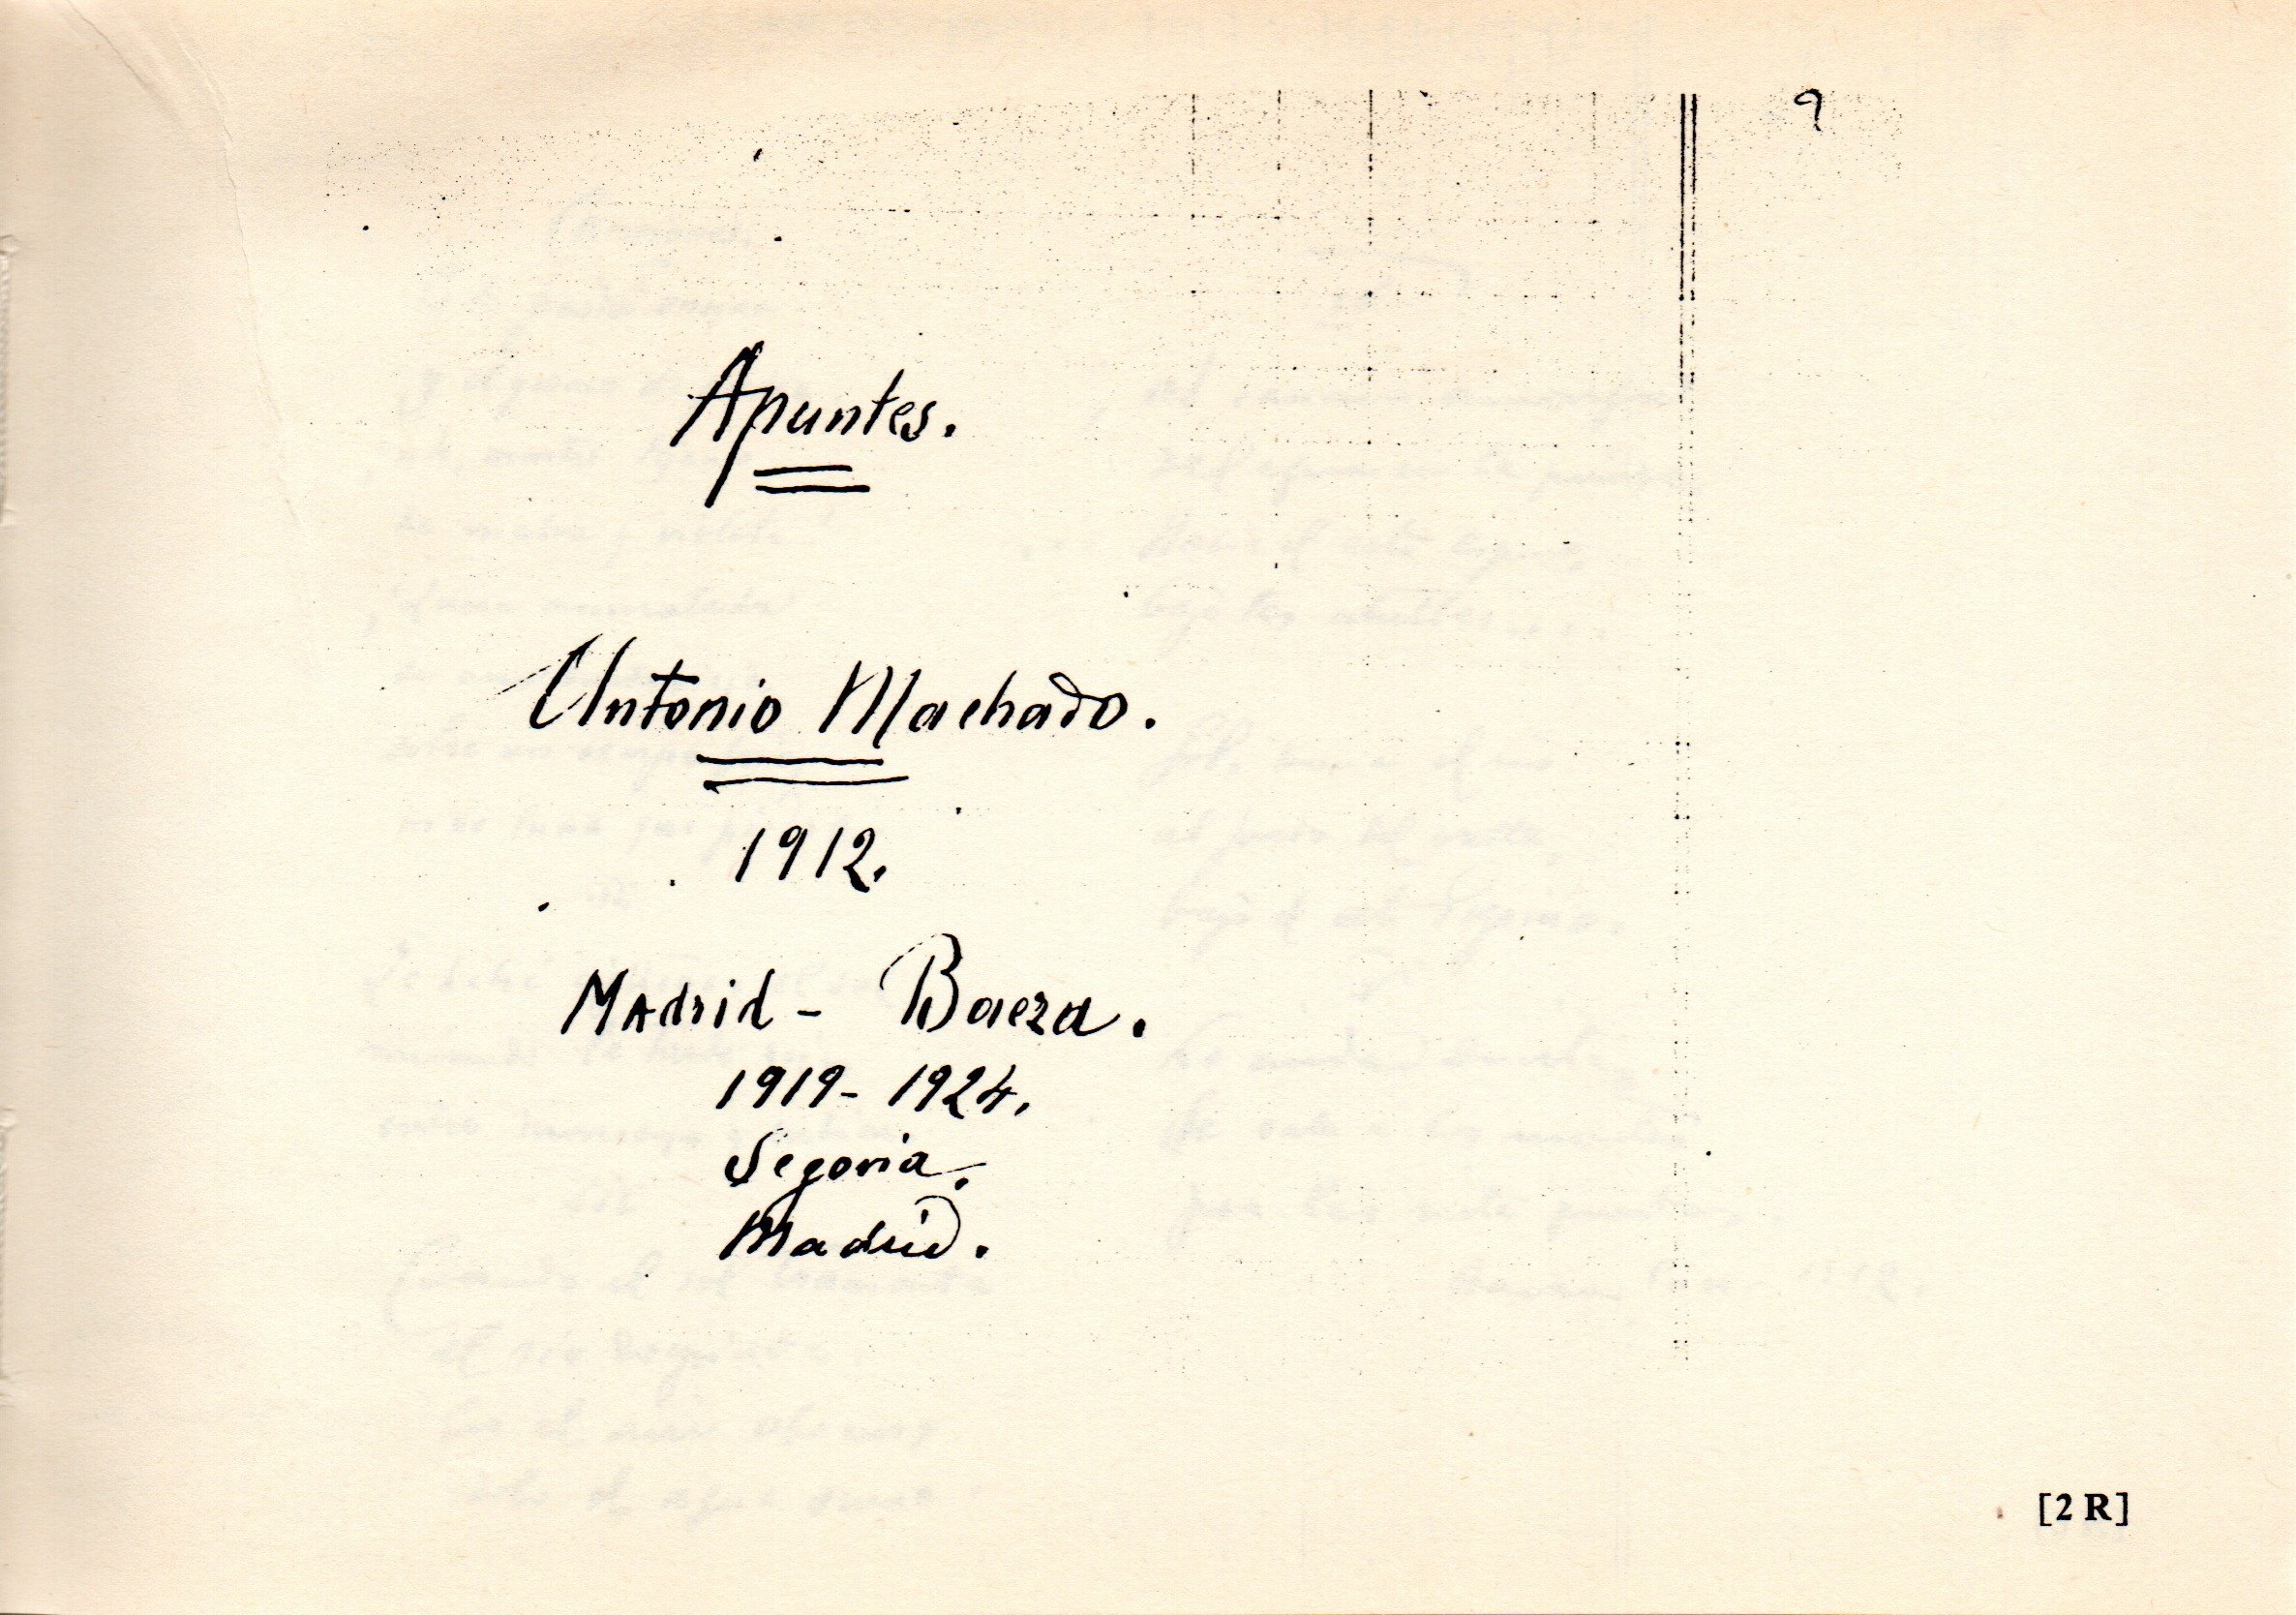 9
Apuntes.
Antonio Machado.
1912.
Madrid - Baeza.
1919 - 1924.
Segovia.
Madrid.
[2 R]